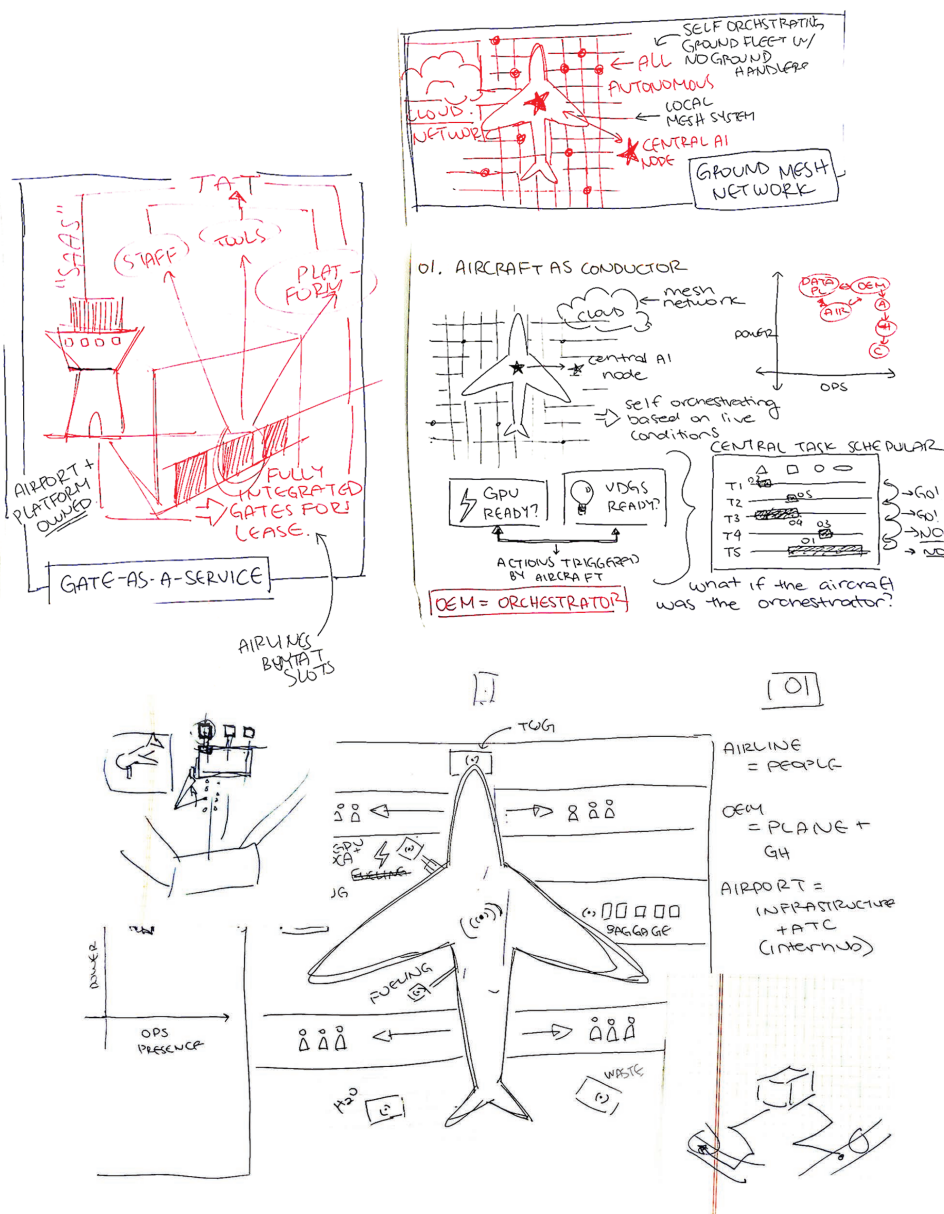 SELF ORCHSTRATING
GROUND FLEET W/
NO GROUND
HANDLERS
ALL
AUTONOMOUS
LOCAL
MESH SYSTEM
CLOUD
NETWORK
CENTRAL AI
NODE
GROUND MESH
NETWORK
TAT
"SAAS"
STAFF
TOOLS
PLAT-
FORM
AIRPORT +
PLATFORM
OWNED
FULLY
INTEGRATED
GATES FOR
LEASE.
GATE-AS-A-SERVICE
AIRLINES
BUY TAT
SLOTS
01. AIRCRAFT AS CONDUCTOR
mesh
network
CLOUD
central AI
node
self orchestrating
based on live
conditions
DATA
PL
OEM
AIR
A
C
POWER
OPS
GPU
READY?
VDGS
READY?
ACTIONS TRIGGERED
BY AIRCRAFT
OEM = ORCHESTRATOR
CENTRAL TASK SCHEDULAR
T1
02
T2
05
T3
04
T4
03
T5
01
GO!
GO!
NO
NO
what if the aircraft
was the orchestrator?
01
TUG
GPU
FUELING
UG
BAGGAGE
FUELING
H2O
WASTE
AIRLINE
= PEOPLE
OEM
= PLANE +
GH
AIRPORT =
INFRASTRUCTURE
+ ATC
(interhub)
POWER
OPS
PRESENCE